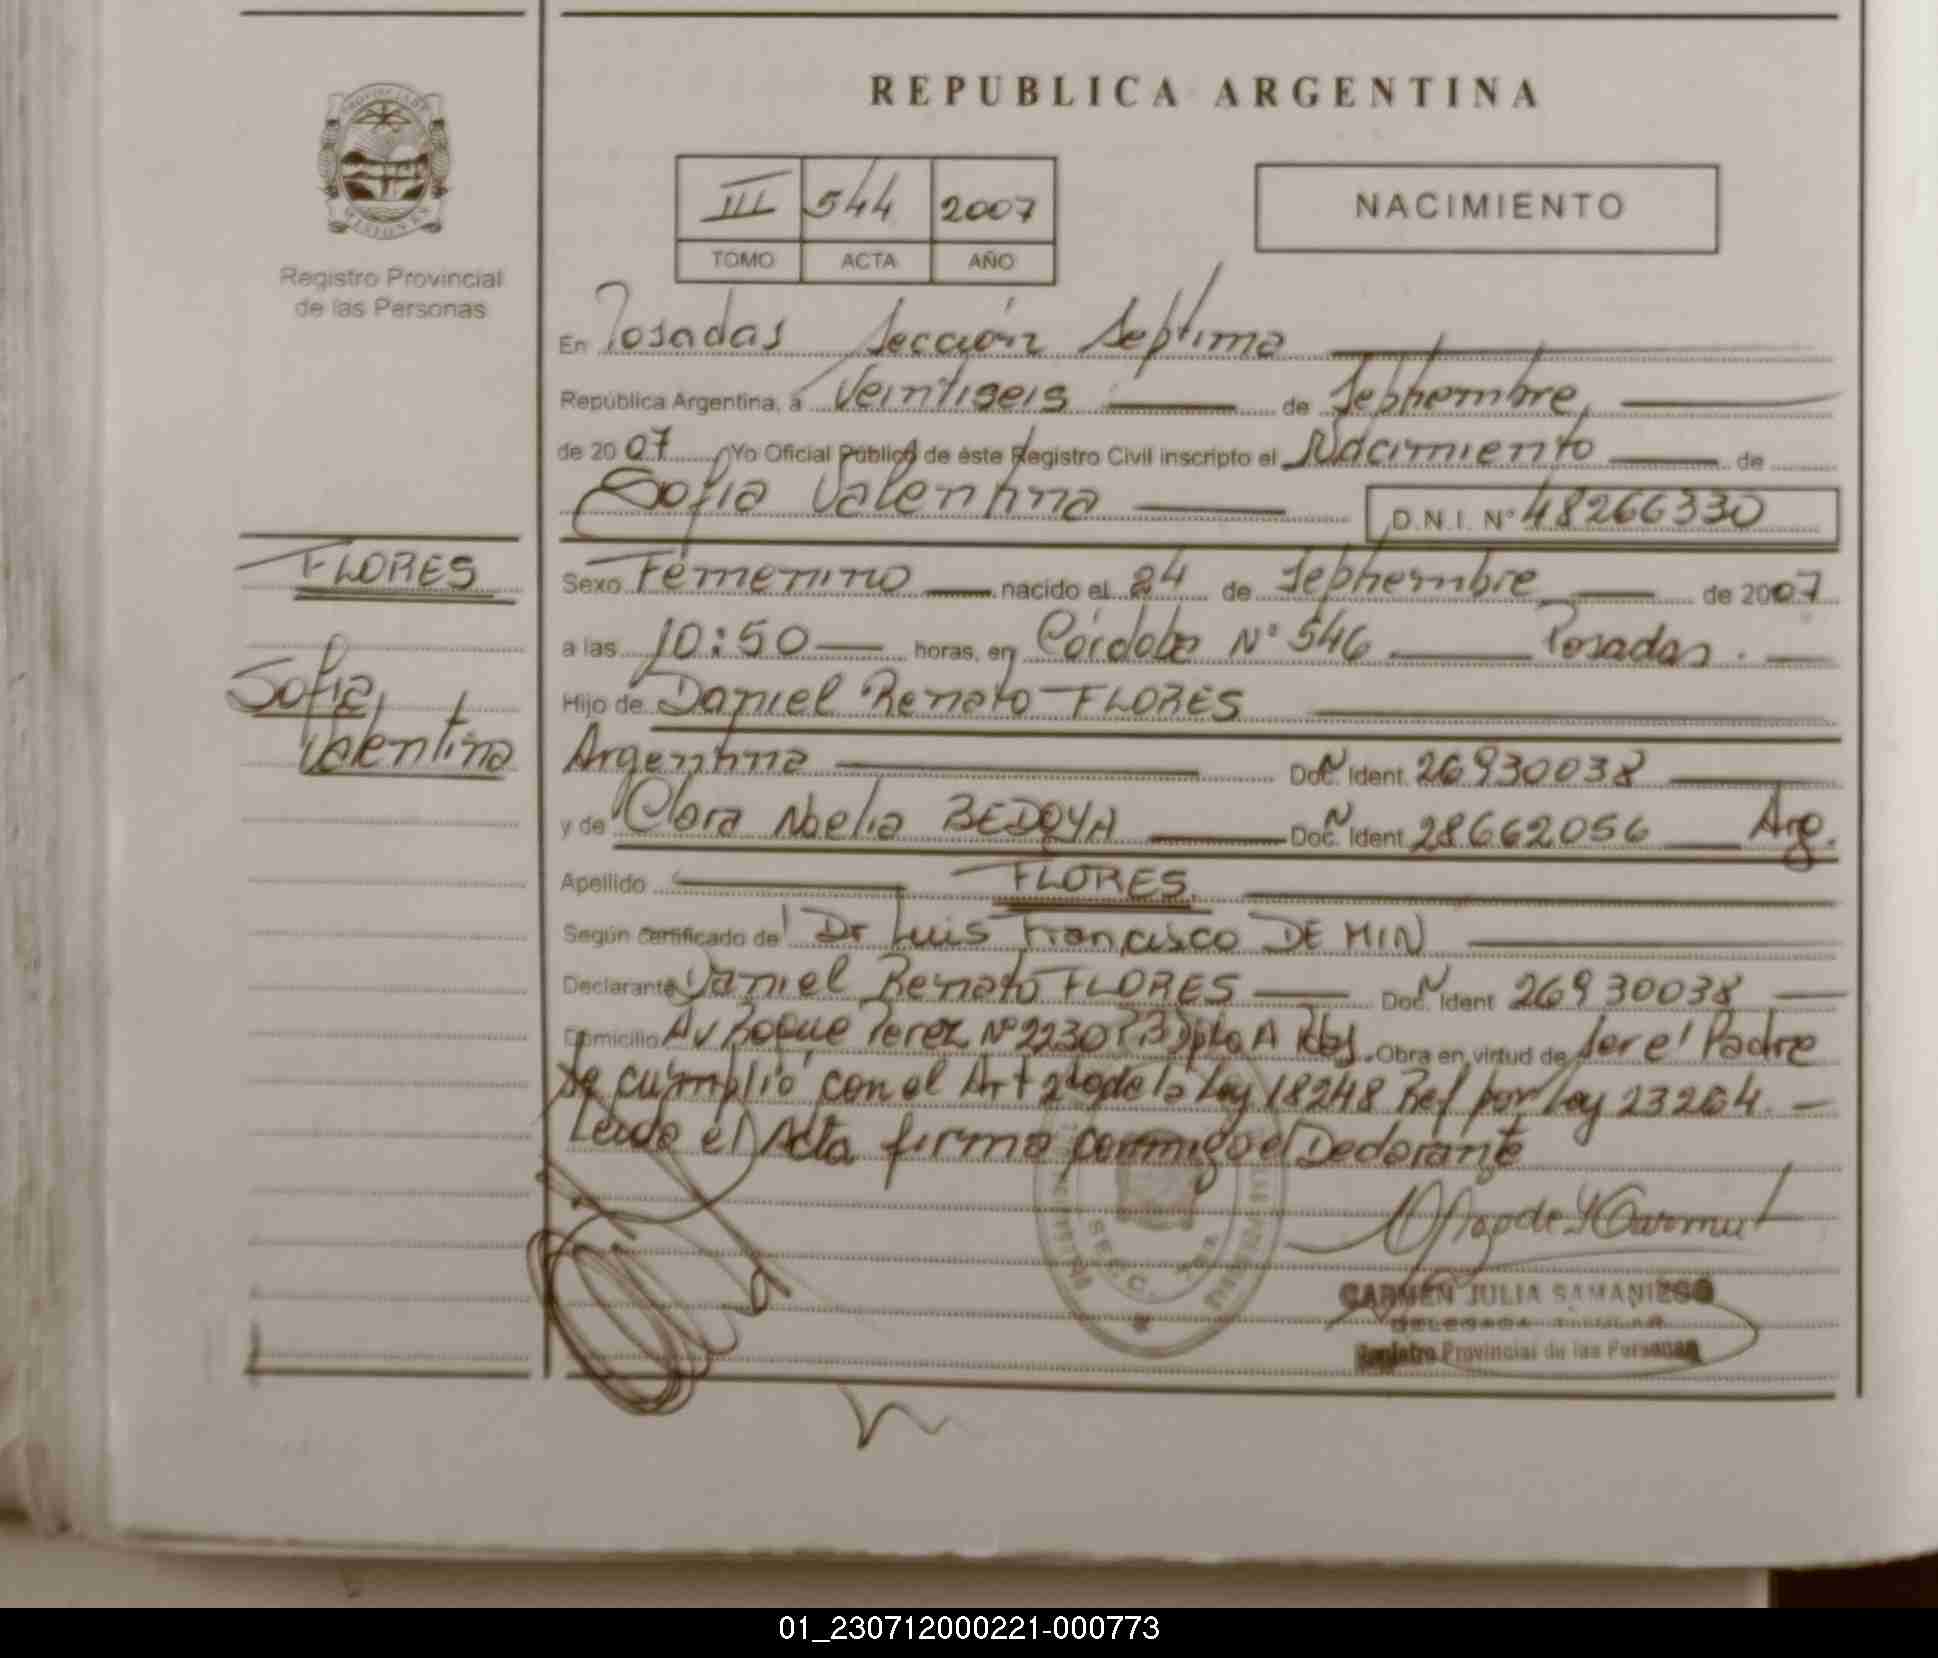 REPUBLICA ARGENTINA
PROVINCIA DE MISIONES
Registro Provincial
de las Personas
III 544 2007
TOMO ACTA AÑO
NACIMIENTO
En Posadas Sección Septima
República Argentina, a Veintiseis de Septiembre,
de 2007 Yo Oficial Público de éste Registro Civil inscripto el Nacimiento de
Sofia Valentina D.N.I. N° 48266330
FLORES
Sofia
Valentina
Sexo Femenino nacido el 24 de Septiembre de 2007
a las 10:50 horas, en Córdoba N° 546 Posadas.
Hijo de Daniel Renato FLORES
Argentina Doc. Ident. 26930038
y de Clara Noelia BEDOYA Doc. Ident. 28662056 Arg.
Apellido FLORES
Según certificado de Dr Luis Francisco DE MIN
Declarante Daniel Renato FLORES Doc. Ident 26930038
Domicilio Av Roque Perez N° 2230 P3 Dpto A Pdas. Obra en virtud de ser el Padre
Se cumplió con el Art 2do de la Ley 18248 Ref por Ley 23264
Leida el Acta firma conmigo el Declarante
SECC. 7MA
CARMEN JULIA SAMANIEGO
DELEGADA TITULAR
Registro Provincial de las Personas
01_230712000221-000773